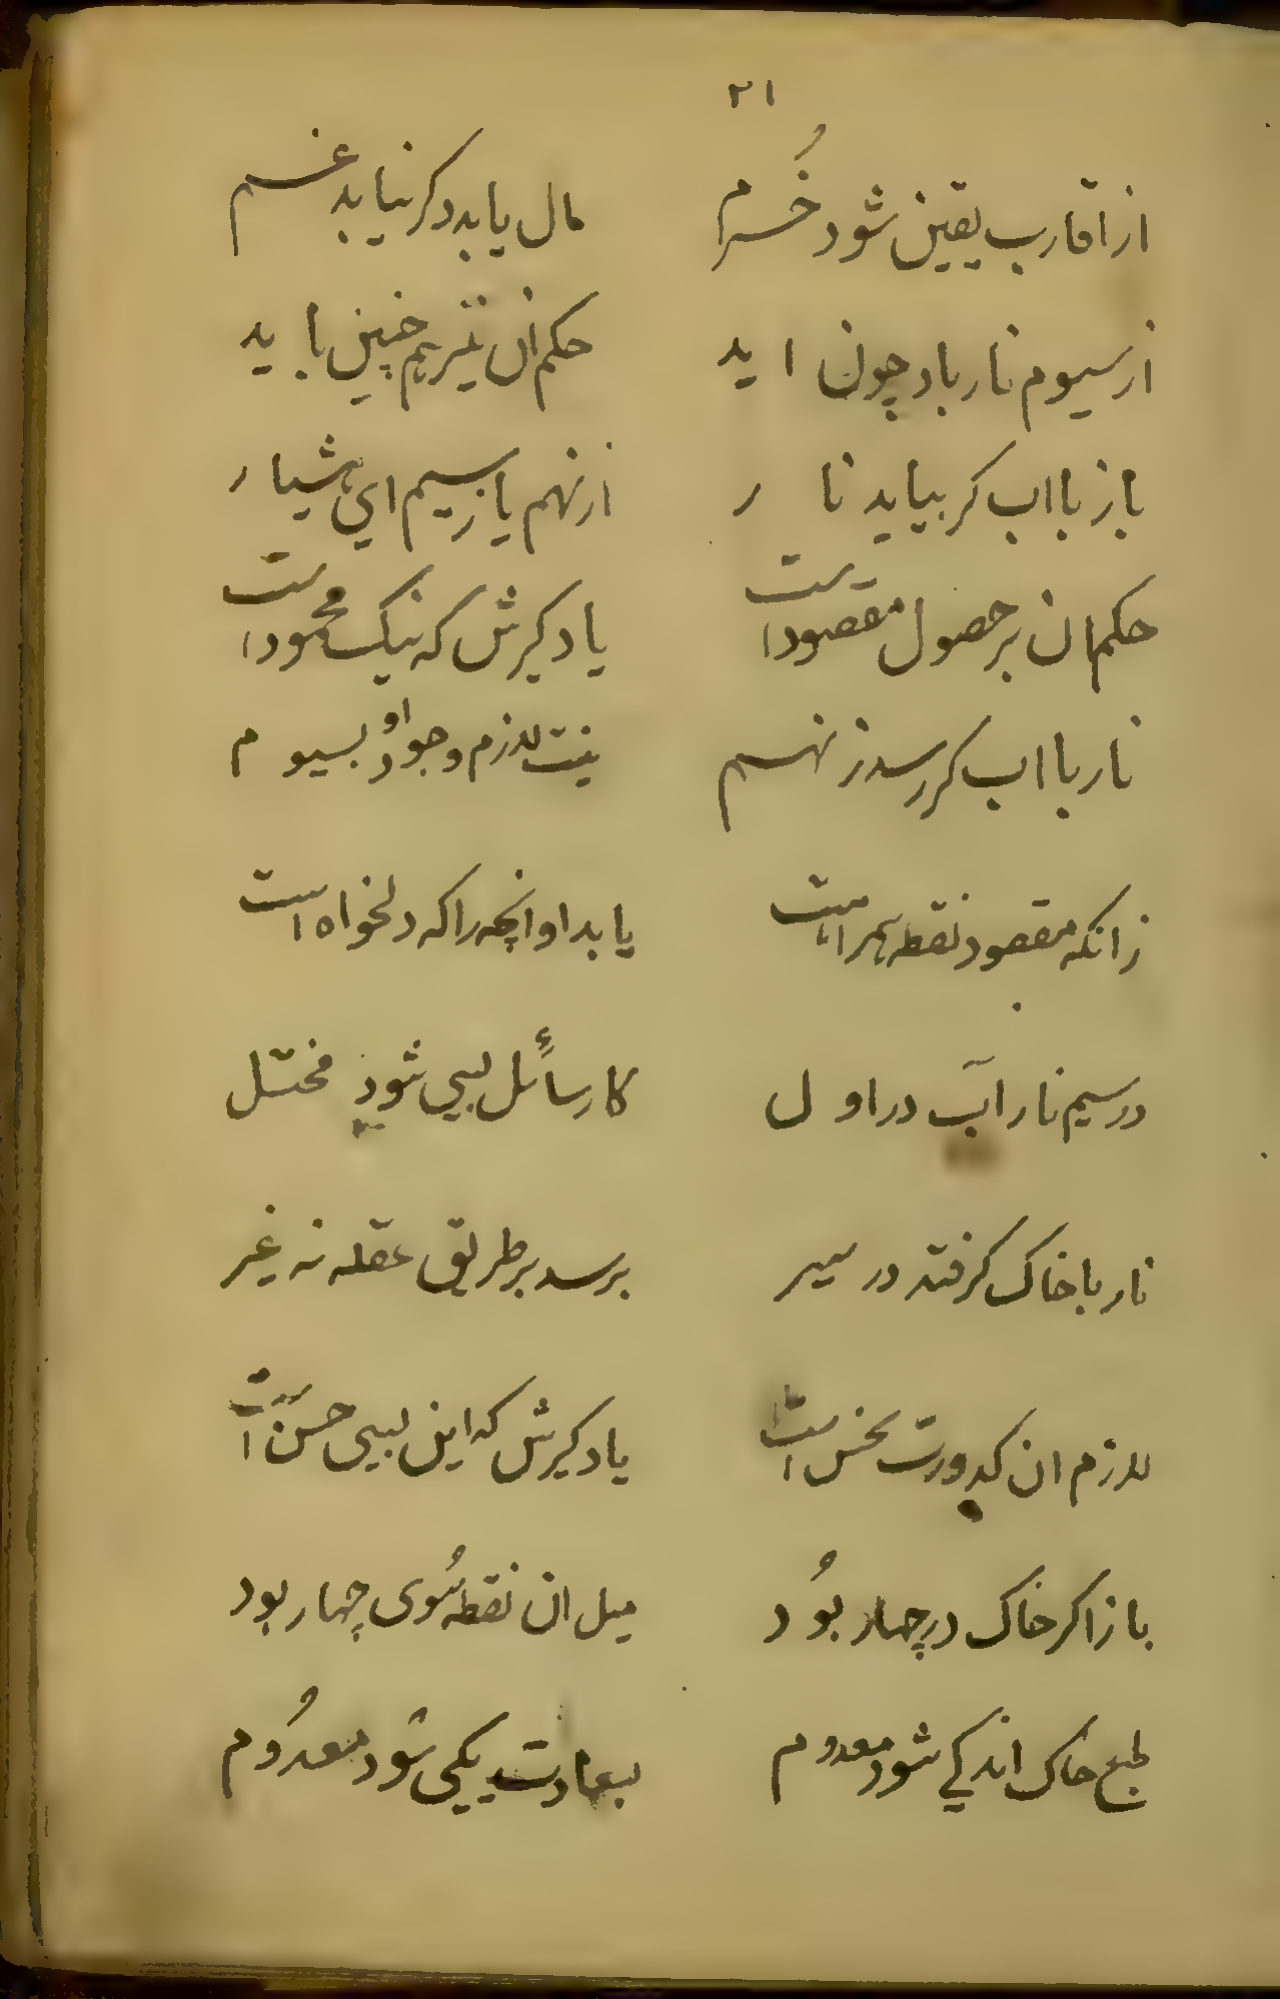 ۲۱
از اقارب یقین شود خُرم مال یابد وکر نیابد غم
از سیوم نار باد چون اید حکم ان نیز هم چنین باید
باز با اب کر بیاید نار از نهم یا زسیم ای هشیار
حکم ان بر حصول مقصود است یاد کیرش که نیک محمود است
نار با اب کر رسد ز نهم نیت لازم وجود او بسیوم
زانکه مقصود نقطه همراهست یابد او انچه را که دلخواه است
در سیم نار اب در اول کار سائل بسی شود مختل
نار با خاک کرفته در سیر برسد بر طریق عقله نه غیر
لازم ان کدورت نحس است یاد کیرش که این بسی حسن است
باز اکر خاک در چهار بُود میل ان نقطه سُوی چهار بود
طبع خاک اندکی شود معدوم بعادت یکی شود معدُوم